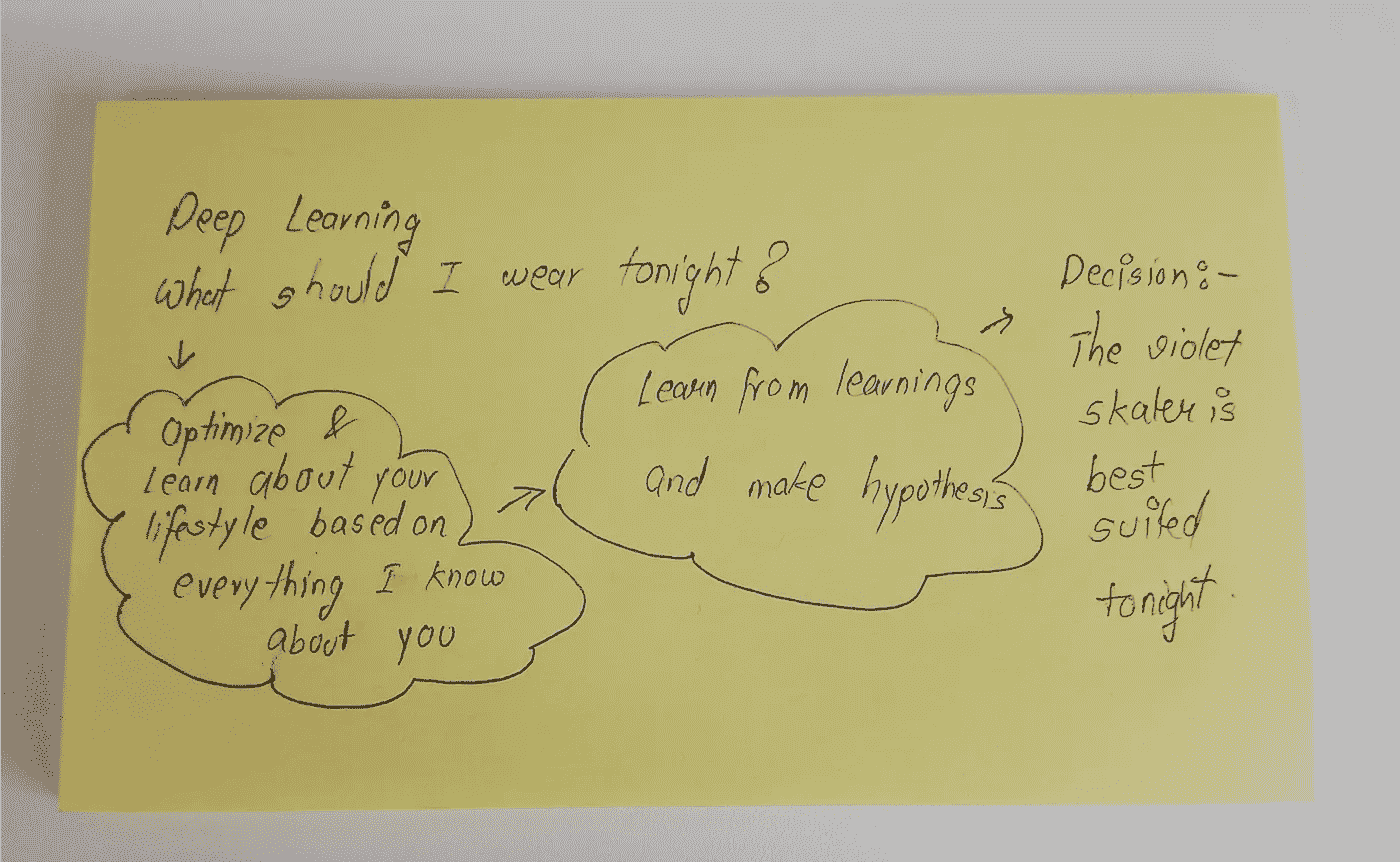 Deep Learning
What should I wear tonight?
Optimize &
Learn about your
lifestyle based on
everything I know
about you
Learn from learnings
and make hypothesis
Decision:-
The violet
skater is
best
suited
tonight.